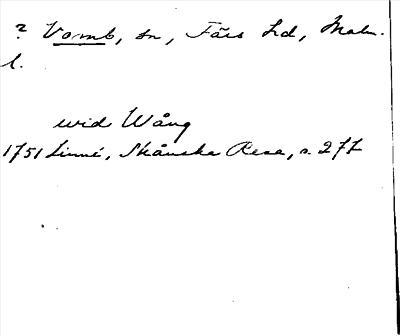 ? Vomb, sn, Färs hd, Malm.
l.
wid Wång
1751 Linné, Skånska Resa, s. 277